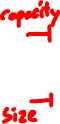 capacity
size